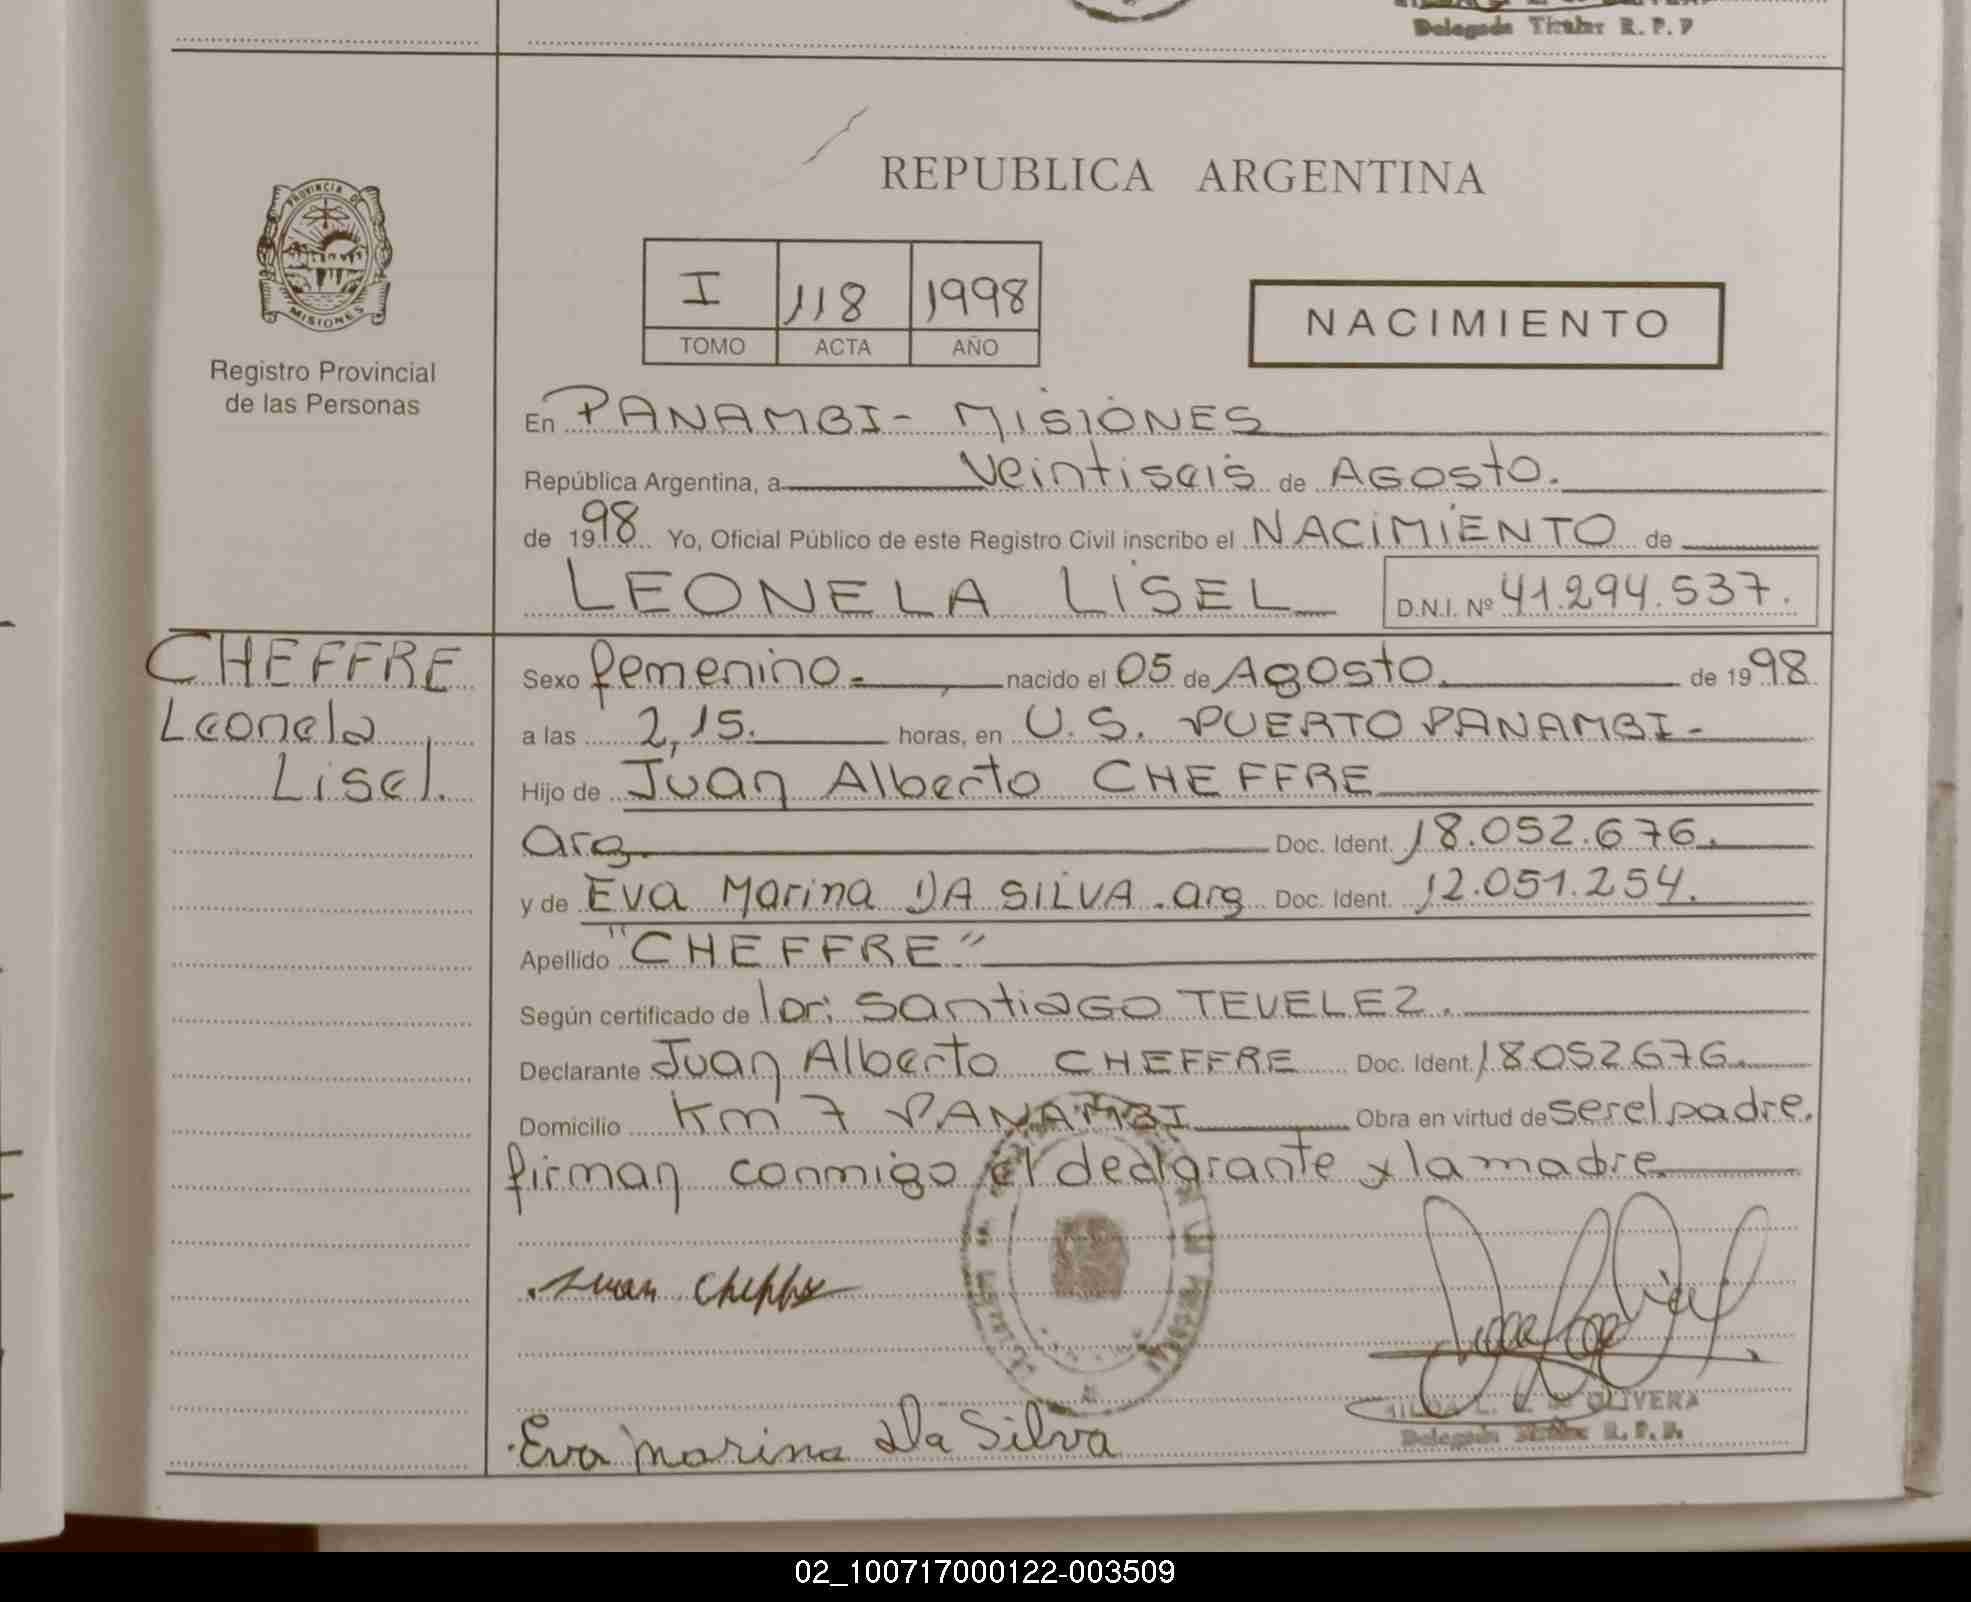 Delegada Titular R. P. P
PROVINCIA DE
MISIONES
Registro Provincial
de las Personas
REPUBLICA ARGENTINA
I 118 1998
TOMO ACTA AÑO
NACIMIENTO
En PANAMBI - MISIONES
República Argentina, a Veintiseis de AGOSto.
de 1998 Yo, Oficial Público de este Registro Civil inscribo el NACIMIENTO de
LEONELA LISEL D.N.I. Nº 41.294.537.
CHEFFRE
Leonela
Lisel.
Sexo femenino. nacido el 05 de Agosto. de 1998
a las 2,15. horas, en U.S. PUERTO PANAMBI-
Hijo de Juan Alberto CHEFFRE
arg. Doc. Ident. 18.052.676.
y de Eva Marina DA SILVA. arg Doc. Ident. 12.051.254.
Apellido "CHEFFRE"
Según certificado de Santiago TEVELEZ.
Declarante Juan Alberto CHEFFRE Doc. Ident. 18052676.
Domicilio Km 7 PANAMBI Obra en virtud de ser el padre.
firman conmigo el declarante y la madre.
Juan Cheffre
OLIVERA
Delegada Titular R. P. P.
Eva Marina Da Silva
02_100717000122-003509